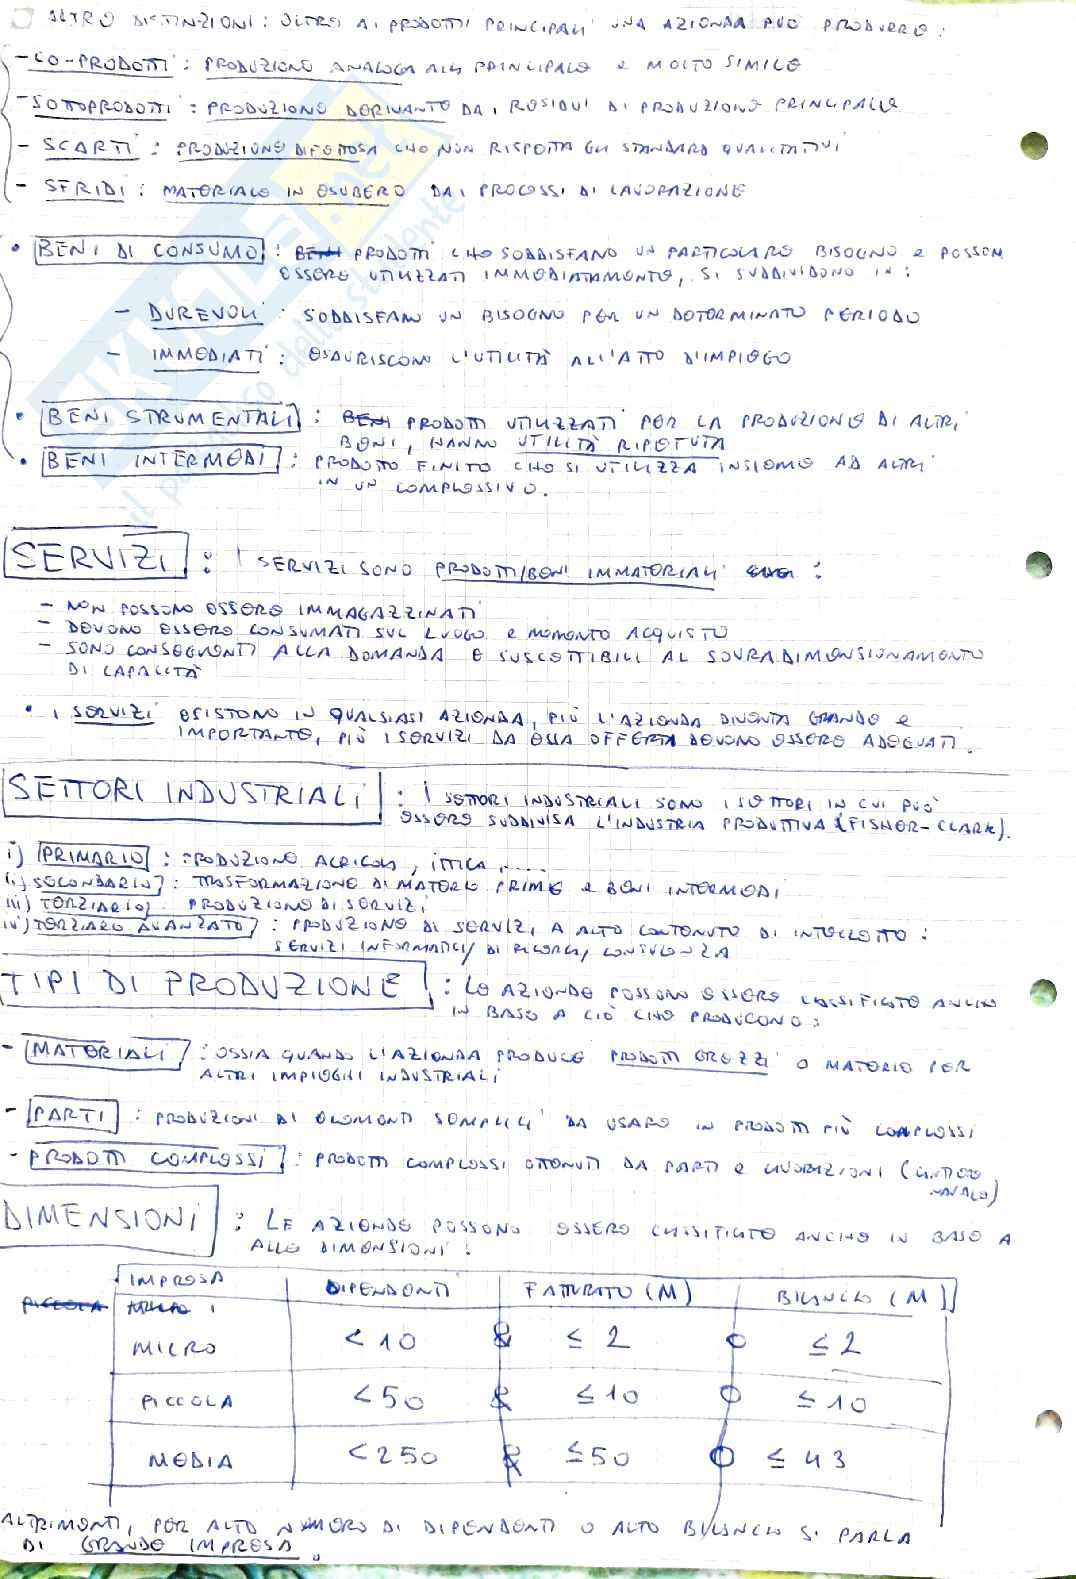 ALTRE DISTINZIONI: OLTRE AI PRODOTTI PRINCIPALI UNA AZIENDA PUÒ PRODURRE:
- CO-PRODOTTI: PRODUZIONE ANALOGA ALLA PRINCIPALE E MOLTO SIMILE
- SOTTOPRODOTTI: PRODUZIONE DERIVANTE DAI RESIDUI DI PRODUZIONE PRINCIPALE
- SCARTI: PRODUZIONE DIFETTOSA CHE NON RISPETTA GLI STANDARD QUALITATIVI
- SFRIDI: MATERIALE IN ESUBERO DAI PROCESSI DI LAVORAZIONE
• BENI DI CONSUMO: BENI PRODOTTI CHE SODDISFANO UN PARTICOLARE BISOGNO E POSSONO
ESSERE UTILIZZATI IMMEDIATAMENTE, SI SUDDIVIDONO IN:
- DUREVOLI: SODDISFANO UN BISOGNO PER UN DETERMINATO PERIODO
- IMMEDIATI: ESAURISCONO L'UTILITÀ ALL'ATTO D'IMPIEGO
• BENI STRUMENTALI: BENI PRODOTTI UTILIZZATI PER LA PRODUZIONE DI ALTRI
BENI, HANNO UTILITÀ RIPETUTA
• BENI INTERMEDI: PRODOTTO FINITO CHE SI UTILIZZA INSIEME AD ALTRI
IN UN COMPLESSIVO.
SERVIZI: I SERVIZI SONO PRODOTTI/BENI IMMATERIALI :
- NON POSSONO ESSERE IMMAGAZZINATI
- DEVONO ESSERE CONSUMATI SUL LUOGO E MOMENTO ACQUISTO
- SONO CONSEGUENTI ALLA DOMANDA E SUSCETTIBILI AL SOVRADIMENSIONAMENTO
DI CAPACITÀ
• I SERVIZI ESISTONO IN QUALSIASI AZIENDA, PIÙ L'AZIENDA DIVENTA GRANDE E
IMPORTANTE, PIÙ I SERVIZI DA ESSA OFFERTA DEVONO ESSERE ADEGUATI.
SETTORI INDUSTRIALI: I SETTORI INDUSTRIALI SONO I SETTORI IN CUI PUÒ
ESSERE SUDDIVISA L'INDUSTRIA PRODUTTIVA (FISHER-CLARK).
i) PRIMARIO: PRODUZIONE AGRICOLA, ITTICA, ....
ii) SECONDARIO: TRASFORMAZIONE DI MATERIE PRIME E BENI INTERMEDI
iii) TERZIARIO: PRODUZIONE DI SERVIZI
iv) TERZIARO AVANZATO: PRODUZIONE DI SERVIZI A ALTO CONTENUTO DI INTELLETTO:
SERVIZI INFORMATICI, DI RICERCA, CONSULENZA
TIPI DI PRODUZIONE: LE AZIENDE POSSONO ESSERE CLASSIFICATE ANCHE
IN BASE A CIÒ CHE PRODUCONO:
- MATERIALI: OSSIA QUANDO L'AZIENDA PRODUCE PRODOTTI GREZZI O MATERIE PER
ALTRI IMPIEGHI INDUSTRIALI
- PARTI: PRODUZIONI DI ELEMENTI SEMPLICI DA USARE IN PRODOTTI PIÙ COMPLESSI
- PRODOTTI COMPLESSI: PRODOTTI COMPLESSI OTTENUTI DA PARTI E LAVORAZIONI (CANTIERE
NAVALE)
DIMENSIONI: LE AZIENDE POSSONO ESSERE CLASSIFICATE ANCHE IN BASE A
ALLE DIMENSIONI:
IMPRESA DIPENDENTI FATTURATO (M) BILANCIO (M)
PICCOLA
MICRO <10 & ≤ 2 O ≤ 2
PICCOLA <50 & ≤ 10 O ≤ 10
MEDIA <250 & ≤ 50 O ≤ 43
ALTRIMENTI, PER ALTO NUMERO DI DIPENDENTI O ALTO BILANCIO SI PARLA
DI GRANDE IMPRESA.